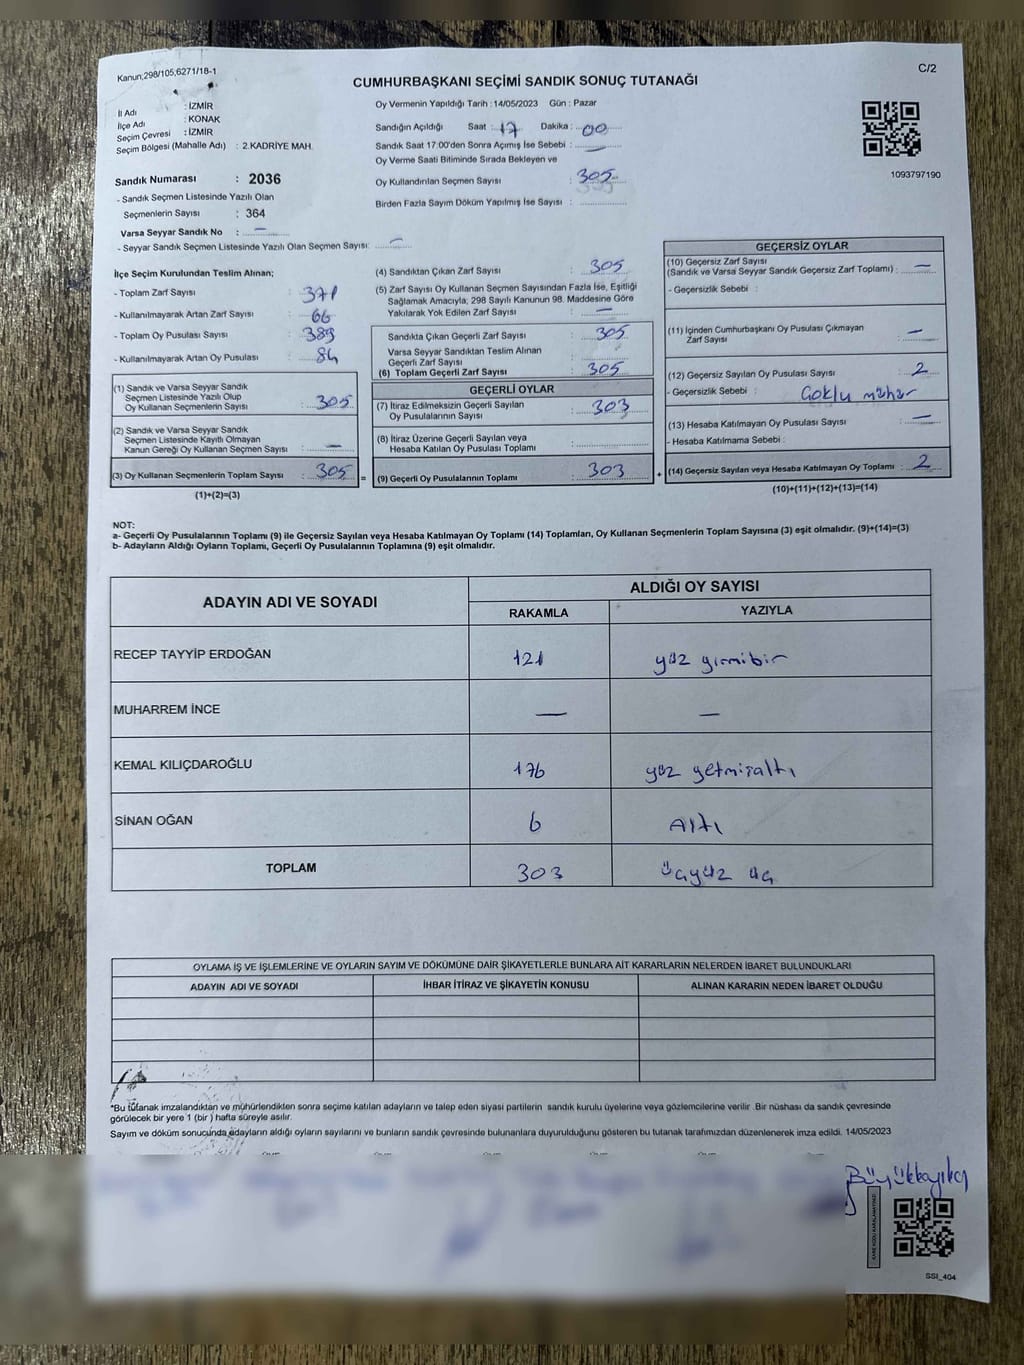 Kanun;298/105,6271/18-1
C/2
CUMHURBAŞKANI SEÇİMİ SANDIK SONUÇ TUTANAĞI
İl Adı : İZMİR
İlçe Adı : KONAK
Seçim Çevresi : İZMİR
Seçim Bölgesi (Mahalle Adı) : 2.KADRİYE MAH.
Sandık Numarası : 2036
- Sandık Seçmen Listesinde Yazılı Olan
Seçmenlerin Sayısı : 364
Varsa Seyyar Sandık No : —
- Seyyar Sandık Seçmen Listesinde Yazılı Olan Seçmen Sayısı: —
Oy Vermenin Yapıldığı Tarih : 14/05/2023 Gün : Pazar
Sandığın Açıldığı Saat : 17 Dakika : 00
Sandık Saat 17:00'den Sonra Açımış İse Sebebi : —
Oy Verme Saati Bitiminde Sırada Bekleyen ve
Oy Kullandırılan Seçmen Sayısı : 305
Birden Fazla Sayım Döküm Yapılmış İse Sayısı :
1093797190
İlçe Seçim Kurulundan Teslim Alınan;
- Toplam Zarf Sayısı : 371
- Kullanılmayarak Artan Zarf Sayısı : 66
- Toplam Oy Pusulası Sayısı : 389
- Kullanılmayarak Artan Oy Pusulası : 84
(1) Sandık ve Varsa Seyyar Sandık
Seçmen Listesinde Yazılı Olup
Oy Kullanan Seçmenlerin Sayısı : 305
(2) Sandık ve Varsa Seyyar Sandık
Seçmen Listesinde Kayıtlı Olmayan
Kanun Gereği Oy Kullanan Seçmen Sayısı : —
(3) Oy Kullanan Seçmenlerin Toplam Sayısı : 305
(1)+(2)=(3)
(4) Sandıktan Çıkan Zarf Sayısı : 305
(5) Zarf Sayısı Oy Kullanan Seçmen Sayısından Fazla İse, Eşitliği
Sağlamak Amacıyla; 298 Sayılı Kanunun 98. Maddesine Göre
Yakılarak Yok Edilen Zarf Sayısı : —
Sandıkta Çıkan Geçerli Zarf Sayısı : 305
Varsa Seyyar Sandıktan Teslim Alınan
Geçerli Zarf Sayısı :
(6) Toplam Geçerli Zarf Sayısı : 305
GEÇERLİ OYLAR
(7) İtiraz Edilmeksizin Geçerli Sayılan
Oy Pusulalarının Sayısı : 303
(8) İtiraz Üzerine Geçerli Sayılan veya
Hesaba Katılan Oy Pusulası Toplamı :
= (9) Geçerli Oy Pusulalarının Toplamı : 303
GEÇERSİZ OYLAR
(10) Geçersiz Zarf Sayısı
(Sandık ve Varsa Seyyar Sandık Geçersiz Zarf Toplamı) : —
- Geçersizlik Sebebi :
(11) İçinden Cumhurbaşkanı Oy Pusulası Çıkmayan
Zarf Sayısı : —
(12) Geçersiz Sayılan Oy Pusulası Sayısı : 2
- Geçersizlik Sebebi : Çoklu mühür
(13) Hesaba Katılmayan Oy Pusulası Sayısı : —
- Hesaba Katılmama Sebebi :
+ (14) Geçersiz Sayılan veya Hesaba Katılmayan Oy Toplamı : 2
(10)+(11)+(12)+(13)=(14)
NOT:
a- Geçerli Oy Pusulalarının Toplamı (9) ile Geçersiz Sayılan veya Hesaba Katılmayan Oy Toplamı (14) Toplamları, Oy Kullanan Seçmenlerin Toplam Sayısına (3) eşit olmalıdır. (9)+(14)=(3)
b- Adayların Aldığı Oyların Toplamı, Geçerli Oy Pusulalarının Toplamına (9) eşit olmalıdır.
ADAYIN ADI VE SOYADI
ALDIĞI OY SAYISI
RAKAMLA YAZIYLA
RECEP TAYYİP ERDOĞAN 121 yüz yirmibir
MUHARREM İNCE — —
KEMAL KILIÇDAROĞLU 176 yüz yetmişaltı
SİNAN OĞAN 6 Altı
TOPLAM 303 üçyüz üç
OYLAMA İŞ VE İŞLEMLERİNE VE OYLARIN SAYIM VE DÖKÜMÜNE DAİR ŞİKAYETLERLE BUNLARA AİT KARARLARIN NELERDEN İBARET BULUNDUKLARI
ADAYIN ADI VE SOYADI İHBAR İTİRAZ VE ŞİKAYETİN KONUSU ALINAN KARARIN NEDEN İBARET OLDUĞU
*Bu tutanak imzalandıktan ve mühürlendikten sonra seçime katılan adayların ve talep eden siyasi partilerin sandık kurulu üyelerine veya gözlemcilerine verilir .Bir nüshası da sandık çevresinde
görülecek bir yere 1 (bir ) hafta süreyle asılır.
Sayım ve döküm sonucunda adayların aldığı oyların sayılarını ve bunların sandık çevresinde bulunanlara duyurulduğunu gösteren bu tutanak tarafımızdan düzenlenerek imza edildi. 14/05/2023
SSI_404